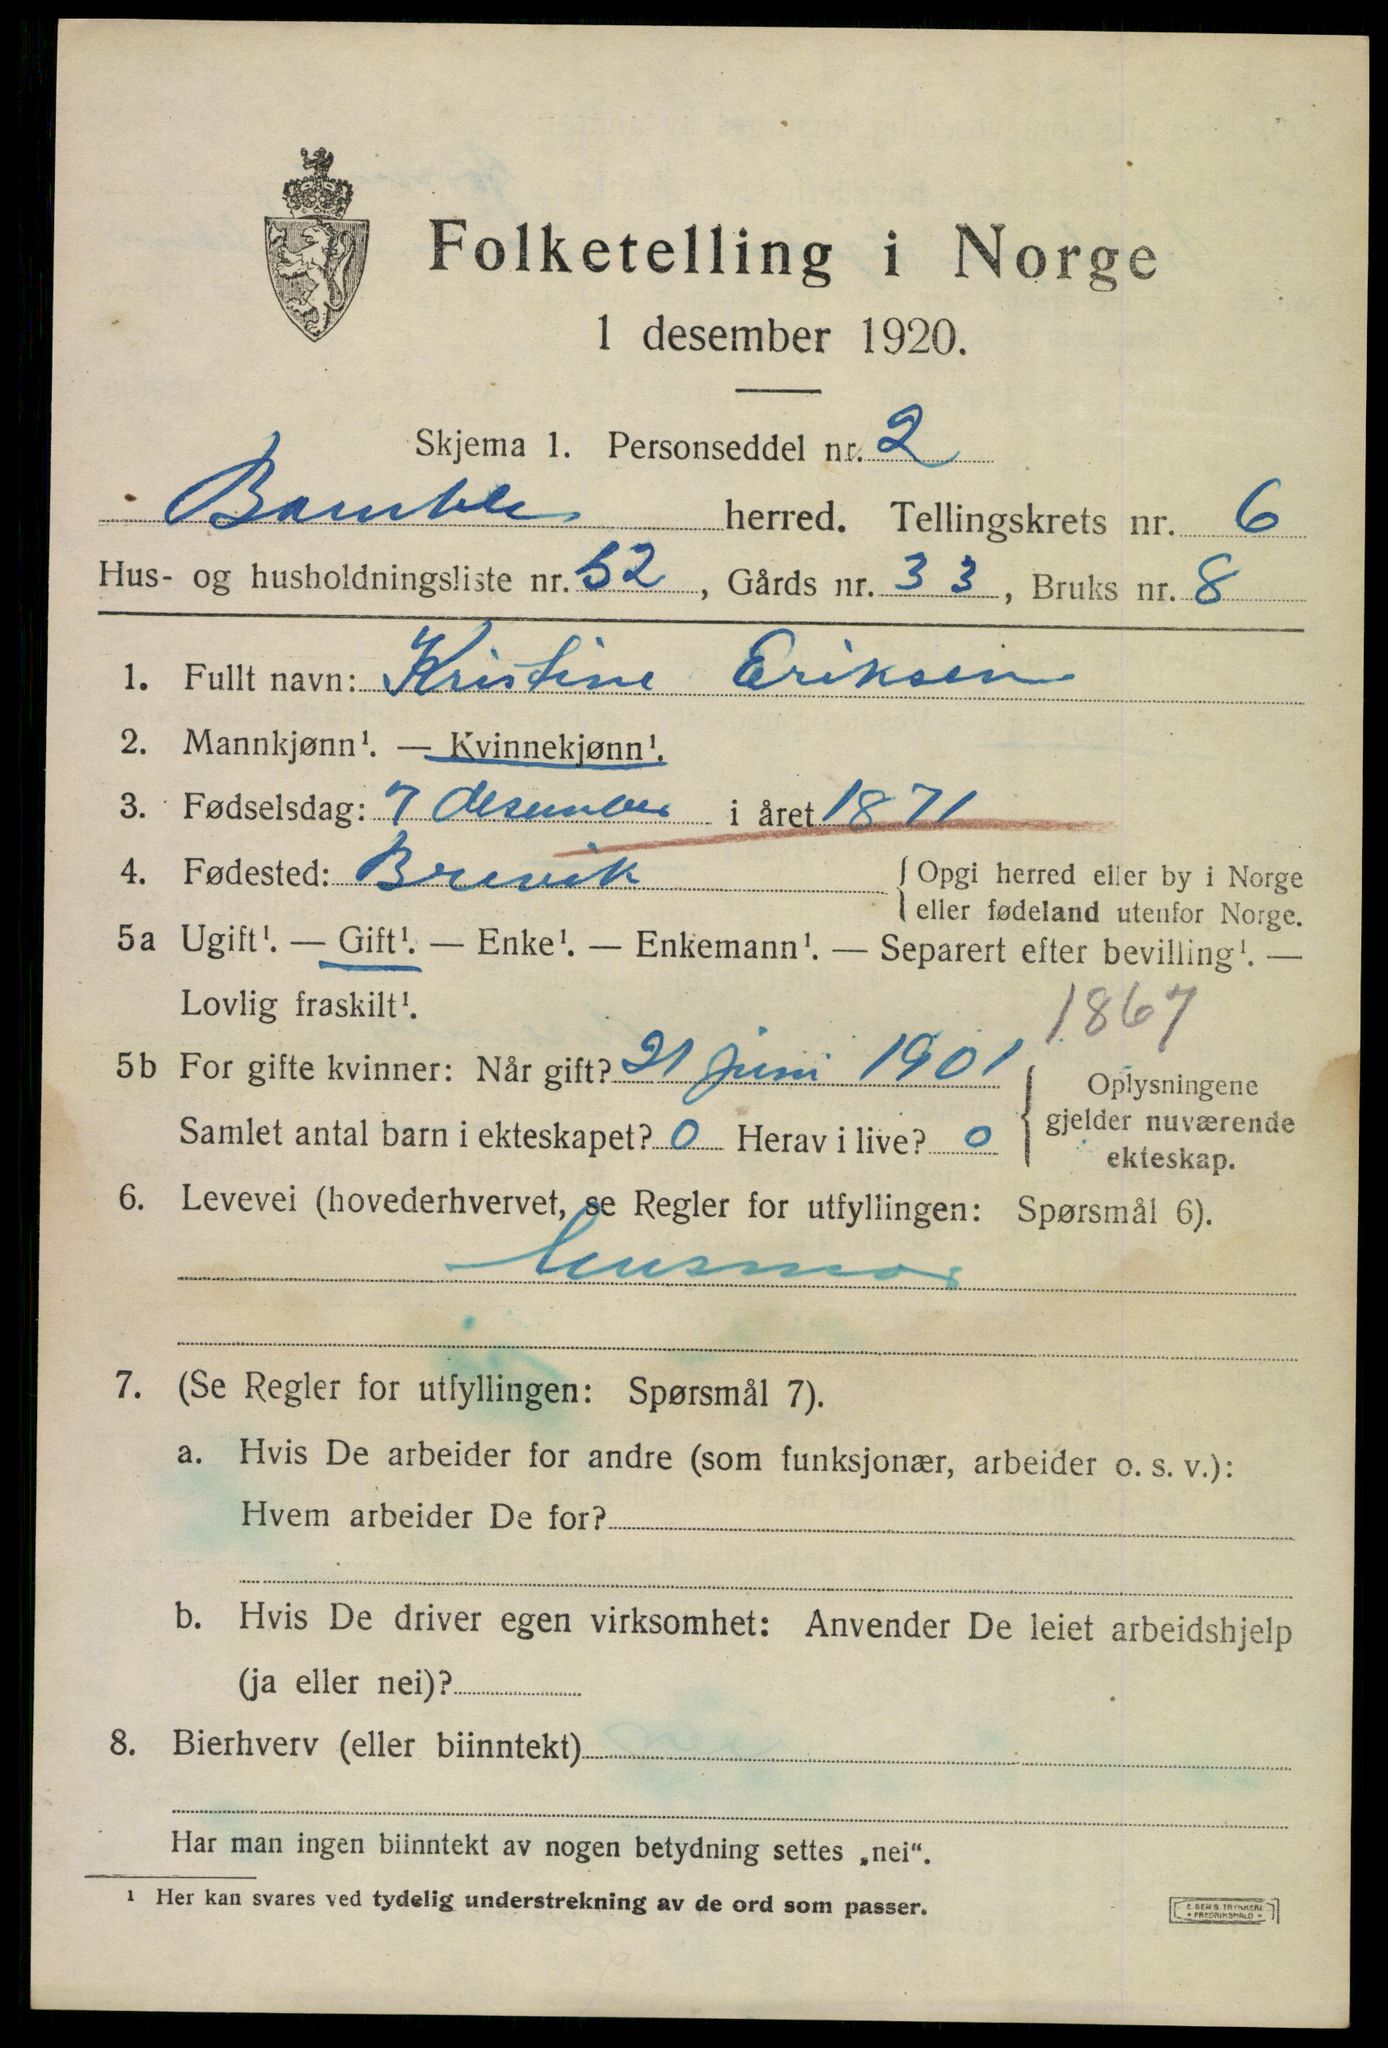 Folketelling i Norge
1 desember 1920.
Skjema 1. Personseddel nr. 2
Bamble herred. Tellingskrets nr. 6
Hus- og husholdningsliste nr. 52, Gårds nr. 33, Bruks nr. 8
1. Fullt navn: Kristine Eriksen
2. Mannkjønn¹. — Kvinnekjønn¹.
3. Fødselsdag: 7 desember i året 1871
4. Fødested: Brevik { Opgi herred eller by i Norge
eller fødeland utenfor Norge.
5a Ugift¹. — Gift¹. — Enke¹. — Enkemann¹. — Separert efter bevilling¹. —
Lovlig fraskilt¹.
1867
5b For gifte kvinner: Når gift? 21 juni 1901 { Oplysningene
gjelder nuværende
Samlet antal barn i ekteskapet? 0 Herav i live? 0
ekteskap.
6. Levevei (hovederhvervet, se Regler for utfyllingen: Spørsmål 6).
Husmor
7. (Se Regler for utfyllingen: Spørsmål 7).
a. Hvis De arbeider for andre (som funksjonær, arbeider o. s. v.):
Hvem arbeider De for?
b. Hvis De driver egen virksomhet: Anvender De leiet arbeidshjelp
(ja eller nei)?
8. Bierhverv (eller biinntekt)
Har man ingen biinntekt av nogen betydning settes „nei“.
¹ Her kan svares ved tydelig understrekning av de ord som passer.
E. SEM'S TRYKKERI
FREDRIKSHALD